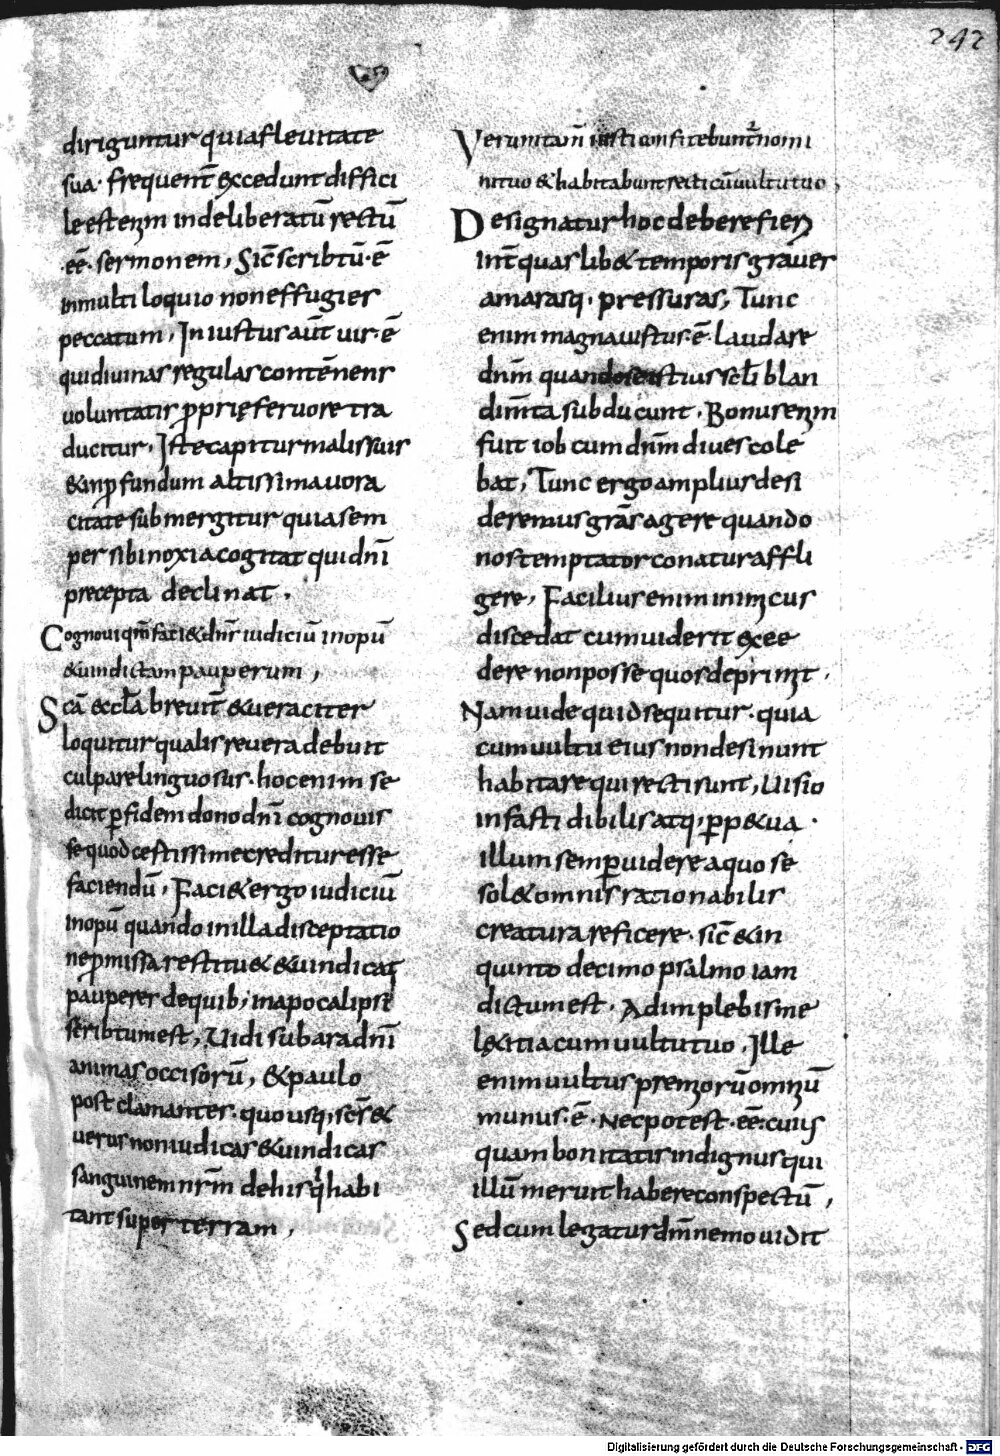 242
diriguntur quia fleuitate
sua· frequent̄ excedunt diffici
le est enim indeliberatū rectū
·eē· sermonem, Sic̄ scribtū·ē
in multiloquio non effugies
peccatum, Iniustus aūt uir·ē
qui diuinas regulas contēnens
uoluntatis p̄prię feruore tra
ducitur, Iste capitur malis suis
& in p̄fundum altissima uora
citate submergitur quia sem
per sibi noxia cogitat qui dn̄i
precepta declinat·
Cognoui qm̄ faci& dn̄s iudiciū inopū
& uindictam pauperum,
Sc̄a eccl̄a breuit̄ & ueraciter
loquitur qualis reuera debuit
culpare linguosus· hoc enim se
dicit p̄ fidem dono dn̄i cognouis
se quod certissime creditur esse
faciendū, Faci& ergo iudiciū
inopū quando in illa disceptatio
ne p̄missa restitu& & uindicat
pauperes de quib; in apocalipse
scribtum est, Uidi sub ara dn̄i
animas occisorū, & paulo
post clamantes· quo usq; sc̄s &
uerus non iudicas & uindicas
sanguinem nr̄m de his q̄ habi
tant super terram,
Verumtam̄ iusti confitebunt̄ nomi
ni tuo & habitabunt recti cū uultu tuo,
Designatur hoc debere fieri
int̄ quas lib& temporis graues
amarasq· pressuras, Tunc
enim magna uirtus·ē· laudare
dn̄m quando se istius scl̄i blan
dim̄ta subducunt, Bonus enim
fuit iob cum dn̄m diues cole
bat, Tunc ergo amplius desi
deremus grās agere quando
nos temptator conatur affli
gere, Facilius enim inimicus
discedat cum uiderit excé
dere non posse quos deprimit,
Nam uide quid sequitur· quia
cum uultu eius non desinunt
habitare qui recti sunt, Uisio
infastidibilis atq; p̄p&ua·
illum semp̄ uidere a quo se
sol& omnis rationabilis
creatura reficere· sic̄ & in
quinto decimo psalmo iam
dictum est· Adimplebis me
lętitia cum uultu tuo, Ille
enim uultus premiorū omniū
munus·ē· Nec potest·eē· cuius
quam bonitatis indignus qui
illū meruit habere conspectū,
Sed cum legatur dm̄ nemo uidit
Digitalisierung gefördert durch die Deutsche Forschungsgemeinschaft - DFG